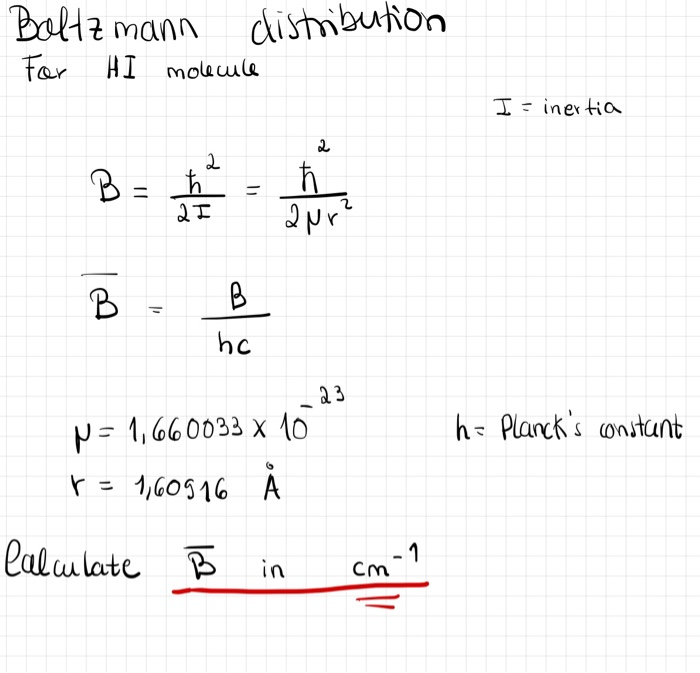 Boltzmann distribution
For HI molecule
I = inertia
B = ħ²/2I = ħ²/2μr²
B̅ = B/hc
μ = 1,660033 × 10⁻²³
h = Planck's constant
r = 1,60916 Å
Calculate B̅ in cm⁻¹